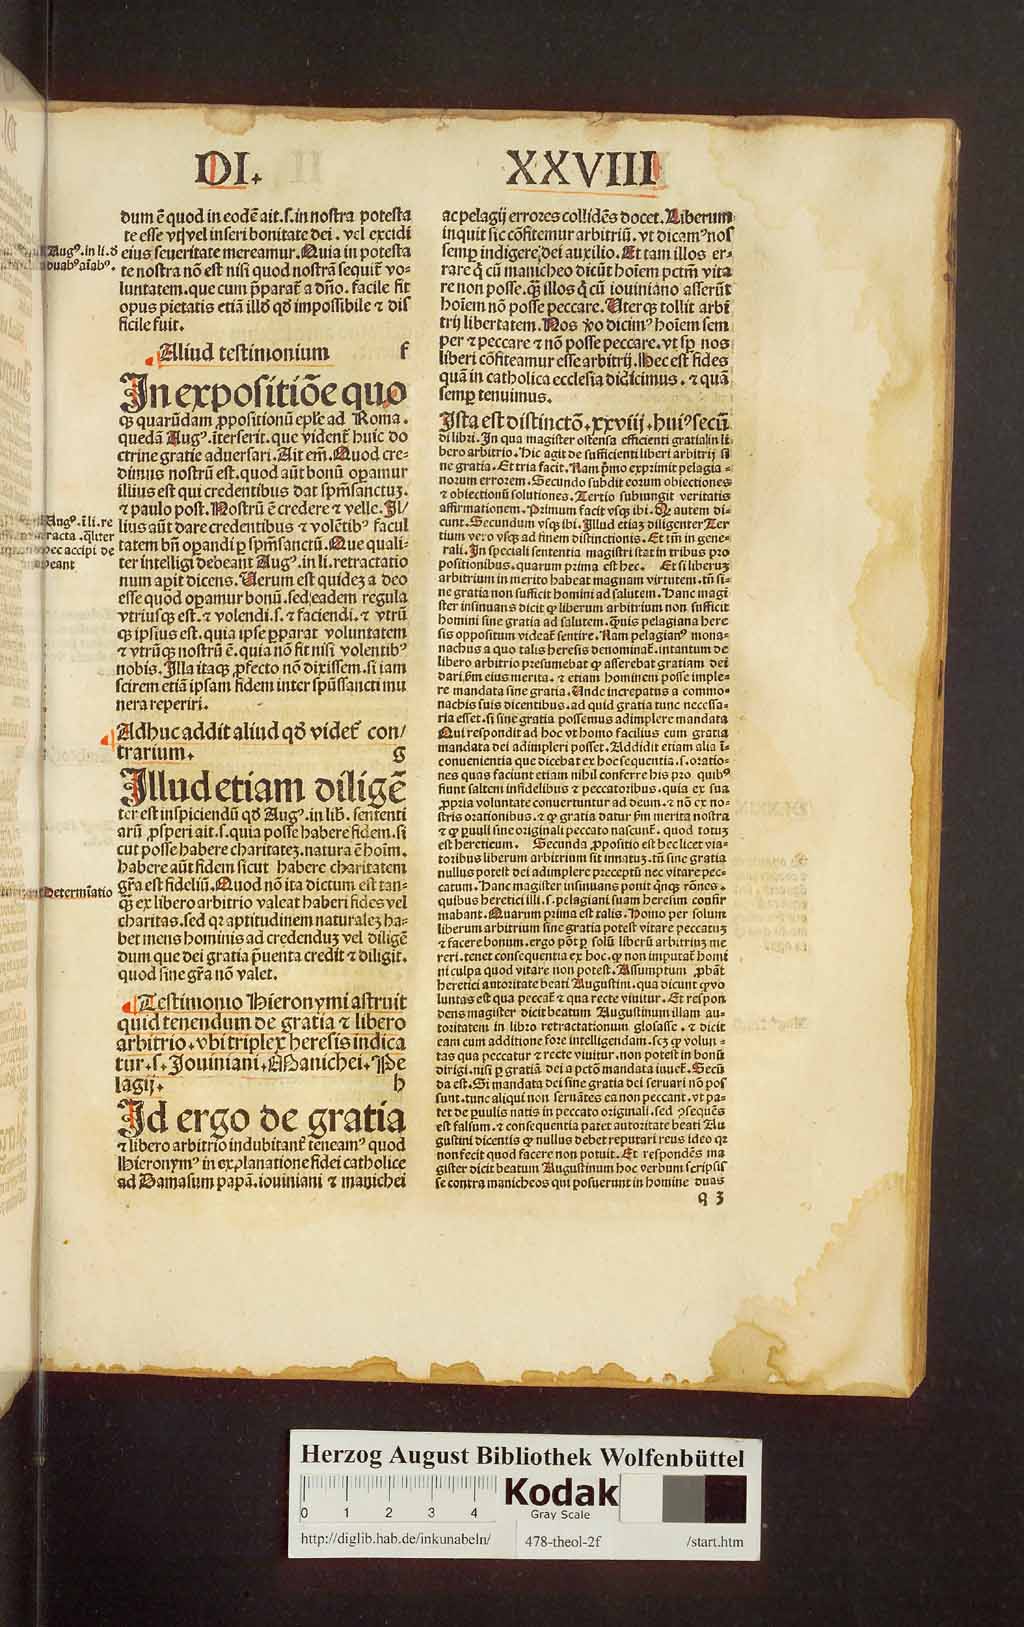 DI.
XXVIII
dum ē quod in eodē ait.s.in nostra potesta
te esse vtꝗ vel inseri bonitate dei. vel excidi
eius seueritate mereamur. Quia in potesta
te nostra nō est nisi quod nostrā sequit̄ vo-
luntatem. que cum p̄parat̄ a dn̄o. facile fit
opus pietatis etiā illd̄ qd̄ impossibile ⁊ dif
ficile fuit.
Aug⁹.in li.d̄
duab⁹ aīab⁹.
Aliud testimonium f
In expositiōe quo
qꝫ quarūdam ꝓpositionū epl̄e ad Roma.
quedā Aug⁹.īterserit. que vident̄ huic do
ctrine gratie aduersari. Ait em̄. Quod cre-
dimus nostrū est. quod aūt bonū oꝑamur
illius est qui credentibus dat sp̄m sanctuꝫ.
⁊ paulo post. Nostrū ē credere ⁊ velle. Il/
lius aūt dare credentibus ⁊ volētib⁹ facul
tatem bn̄ operandi ꝑ sp̄m sanctū. Que quali-
ter intelligi debeant Aug⁹.in li.retractatio
num apit dicens. Uerum est quideꝫ a deo
esse quod oꝑamur bonū. sed eadem regula
vtriusqꝫ est. ⁊ volendi.s.⁊ faciendi. ⁊ vtrū
qꝫ ipsius est. quia ipse p̄parat voluntatem
⁊ vtrūqꝫ nostrū ē. quia nō fit nisi volentib⁹
nobis. Illa itaqꝫ ꝓfecto nō dixissem. si iam
scirem etiā ipsam fidem inter spūssancti mu
nera reperiri.
Aug⁹.ī li.re
tracta.qͥliter
hec accipi de
beant
Adhuc addit aliud qd̄ videt̄ con/
trarium. g
Illud etiam diligē
ter est inspiciendū qd̄ Aug⁹.in lib. sententi
arū ꝓsperi ait.s.quia posse habere fidem. si
cut posse habere charitateꝫ. natura ē hoīm.
habere aūt fidem sicut habere charitatem
gr̄a est fideliū. Quod nō ita dictum est tan-
qͣꝫ ex libero arbitrio valeat haberi fides vel
charitas. sed qꝛ aptitudinem naturaleꝫ ha-
bet mens hominis ad credenduꝫ vel diligē
dum que dei gratia p̄uenta credit ⁊ diligit.
quod sine gr̄a nō valet.
Determīatio
Testimonio Hieronymi astruit
quid tenendum de gratia ⁊ libero
arbitrio. vbi triplex heresis indica
tur.s.Jouiniani. Manichei. Pe
lagij. h
Id ergo de gratia
⁊ libero arbitrio indubitant̄ teneam⁹ quod
Hieronym⁹ in explanatione fidei catholice
ad Damasum papā. iouiniani ⁊ manichei
ac pelagij errores collidēs docet. Liberum
inquit sic cōfitemur arbitriū. vt dicam⁹ nos
semꝑ indigere dei auxilio. Et tam illos er-
rare q̄ cū manicheo dicūt hoīem pctm̄ vita
re non posse. qͣꝫ illos q̄ cū iouiniano asserūt
hoīem nō posse peccare. Uterqꝫ tollit arbi
trij libertatem. Nos v̄o dicim⁹ hoīem sem
per ⁊ peccare ⁊ nō posse peccare. vt sꝑ nos
liberi cōfiteamur esse arbitrij. Hec est fides
quā in catholica ecclesia didicimus. ⁊ quā
semꝑ tenuimus.
Ista est distinctō.xxviij.hui⁹ secū
di libri. In qua magister ostensa efficienti gratia in li
bero arbitrio. Hic agit de sufficienti liberi arbitrij si
ne gratia. Et tria facit. Nam p̄mo exprimit pelagia-
norum errorem. Secundo subdit eorum obiectiones
⁊ obiectionū solutiones. Tertio subiungit veritatis
affirmationem. Primum facit vsqꝫ ibi. Qd̄ autem di-
cunt. Secundum vsqꝫ ibi. Illud etiaꝫ diligenter Ter
tium vero vsqꝫ ad finem distinctionis. Et tm̄ in gene-
rali. In speciali sententia magistri stat in tribus pro
positionibus. quarum prima est hec. Et si liberuꝫ
arbitrium in merito habeat magnam virtutem. tn̄ si-
ne gratia non sufficit homini ad salutem. Hanc magi
ster insinuans dicit ꝙ liberum arbitrium non sufficit
homini sine gratia ad salutem. Quis pelagiana here
sis oppositum videat̄ sentire. Nam pelagian⁹ mona-
nachus a quo talis heresis denominat̄. intantum de
libero arbitrio presumebat ꝙ asserebat gratiam dei
dari ẜm eius merita. ⁊ etiam hominem posse imple-
re mandata sine gratia. Unde increpatus a commo-
nachis suis dicentibus. ad quid gratia tunc necessa-
ria esset. si sine gratia possemus adimplere mandata
Qui respondit ad hoc vt homo facilius cum gratia
mandata dei adimpleri posset. Addidit etiam alia ī-
conuenientia que dicebat ex hoc sequentia.s.oratio-
nes quas faciunt etiam nihil conferre his pro quib⁹
fiunt saltem infidelibus ⁊ peccatoribus. quia ex sua
ꝓpria voluntate conuertuntur ad deum. ⁊ nō ex no-
stris orationibus. ⁊ ꝙ gratia datur ẜm merita nostra
⁊ ꝙ ꝑuuli sine originali peccato nascunt̄. quod totuꝫ
est hereticum. Secunda ꝓpositio est hec licet via-
toribus liberum arbitrium sit innatuꝫ. tn̄ sine gratia
nullus potest dei adimplere preceptū nec vitare pec-
catum. Hanc magister insinuans ponit qͥnqꝫ rōnes.
quibus heretici illi.s.pelagiani suam heresim confir
mabant. Quarum prima est talis. Homo per solum
liberum arbitrium sine gratia potest vitare peccatuꝫ
⁊ facere bonum. ergo pōt ꝑ solū liberū arbitriuꝫ me
reri. tenet consequentia ex hoc. ꝙ non imputat̄ homi
ni culpa quod vitare non potest. Assumptum ꝓbāt
heretici autoritate beati Augustini. qua dicunt ꝙ vo
luntas est qua peccat̄ ⁊ qua recte viuitur. Et respon
dens magister dicit beatum Augustinum illam au-
toritatem in libro retractationum glosasse. ⁊ dicit
eam cum additione fore intelligendam. scꝫ ꝙ volun-
tas qua peccatur ⁊ recte viuitur. non potest in bonū
dirigi. nisi ꝑ gratiā dei a pctō mandata iuuet̄. Secū
da est. Si mandata dei sine gratia dei seruari nō pos
sunt. tunc aliqui non seruātes ea non peccant. vt pa-
tet de ꝑuulis natis in peccato originali. sed ꝯsequēs
est falsum. ⁊ consequentia patet autoritate beati Au
gustini dicentis ꝙ nullus debet reputari reus ideo qꝛ
non fecit quod facere non potuit. Et respondēs ma
gister dicit beatum Augustinum hoc verbum scripsis
se contra manicheos qui posuerunt in homine duas
q 3
Herzog August Bibliothek Wolfenbüttel
0 1 2 3 4
Kodak
Gray Scale
http://diglib.hab.de/inkunabeln/
478-theol-2f
/start.htm